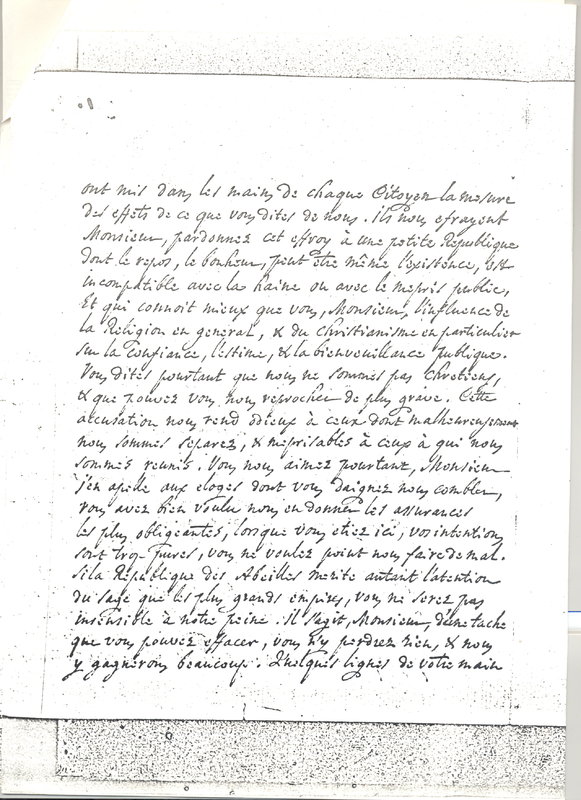 ont mis dans les mains de chaque Citoyen la mesure
des effets de ce que vous dites de nous. Ils nous efrayent
Monsieur, pardonnez cet effroy à une petite Republique
dont le repos, le bonheur, peut être même l'existence, est
incompatible avec la haine ou avec le mepris public,
Et qui connoit mieux que vous, Monsieur, l'influence de
la Religion en general, & du Christianisme en particulier
sur la confiance, l'estime, & la bienveuillance publique.
Vous dites pourtant que nous ne sommes pas Chretiens,
& que pouvez vous nous reprocher de plus grave. Cette
accusation nous rend odieux à ceux dont malheureusement
nous sommes separez, & meprisables à ceux à qui nous
sommes reunis. Vous nous aimez pourtant, Monsieur
j'en apelle aux eloges dont vous daignez nous combler,
vous avez bien voulu nous en donner les assurances
les plus obligeantes, lorsque vous etiez ici, vos intentions
sont trop pures, vous ne voulez point nous faire de mal.
Si la Republique des Abeilles merite autant l'attention
du sage que les plus grands empires, vous ne serez pas
insensible à notre peine. Il s'agit, Monsieur, d'une tache
que vous pouvez effacer, vous n'y perdrez rien, & nous
y gagnerons beaucoup. Quelques lignes de votre main